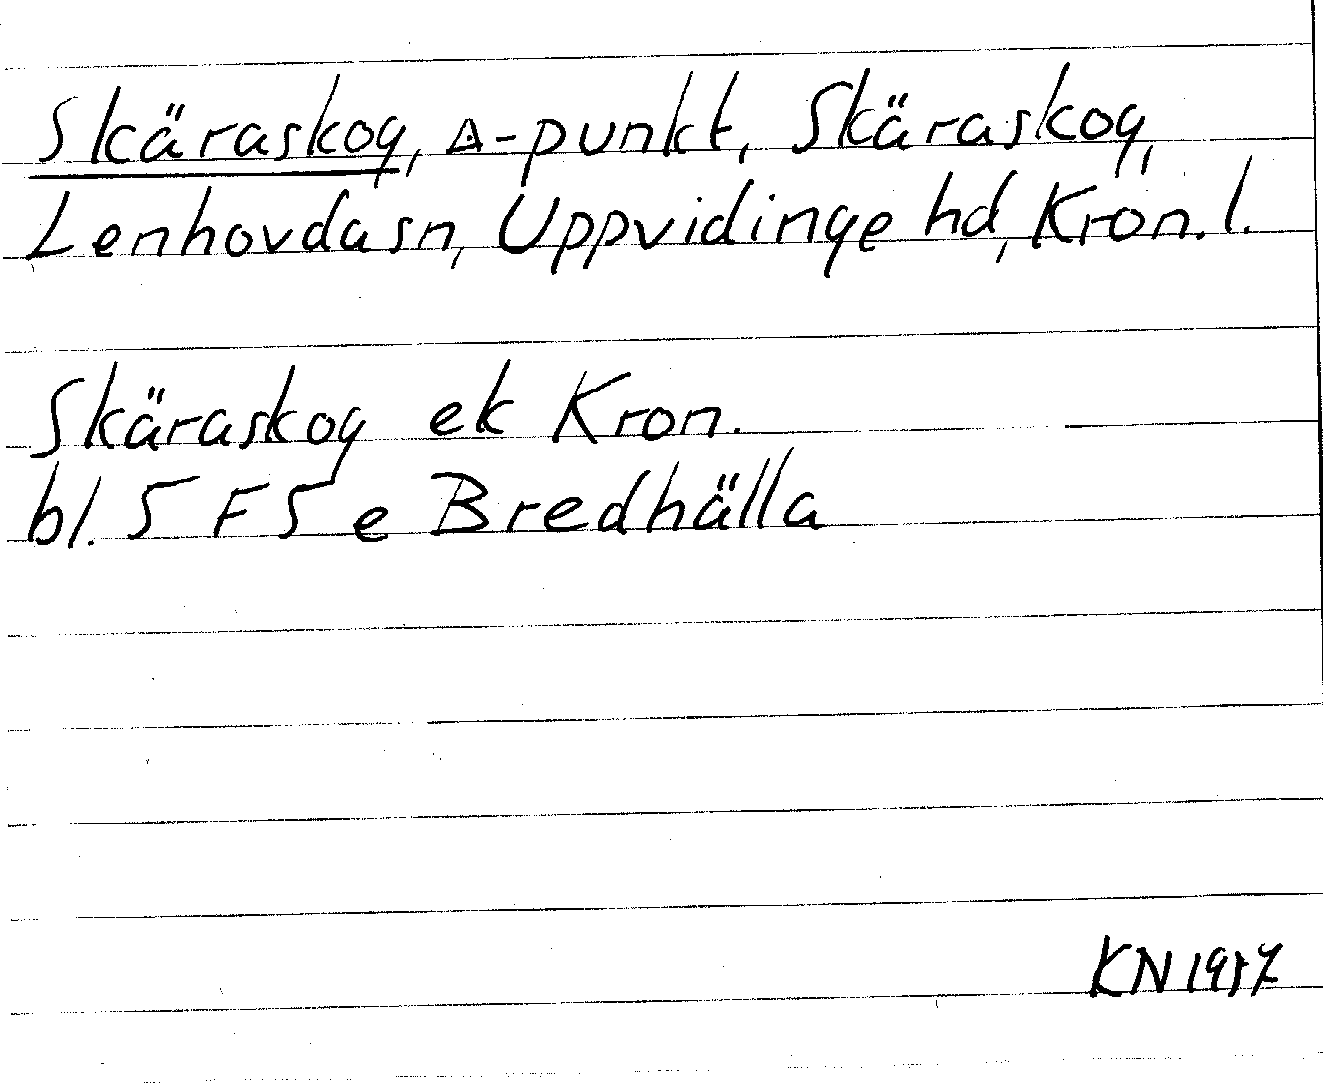 Skäraskog, △-punkt, Skäraskog,
Lenhovda sn, Uppvidinge hd, Kron. l.
Skäraskog ek Kron.
bl. 5 F 5 e Bredhälla
KN 1957